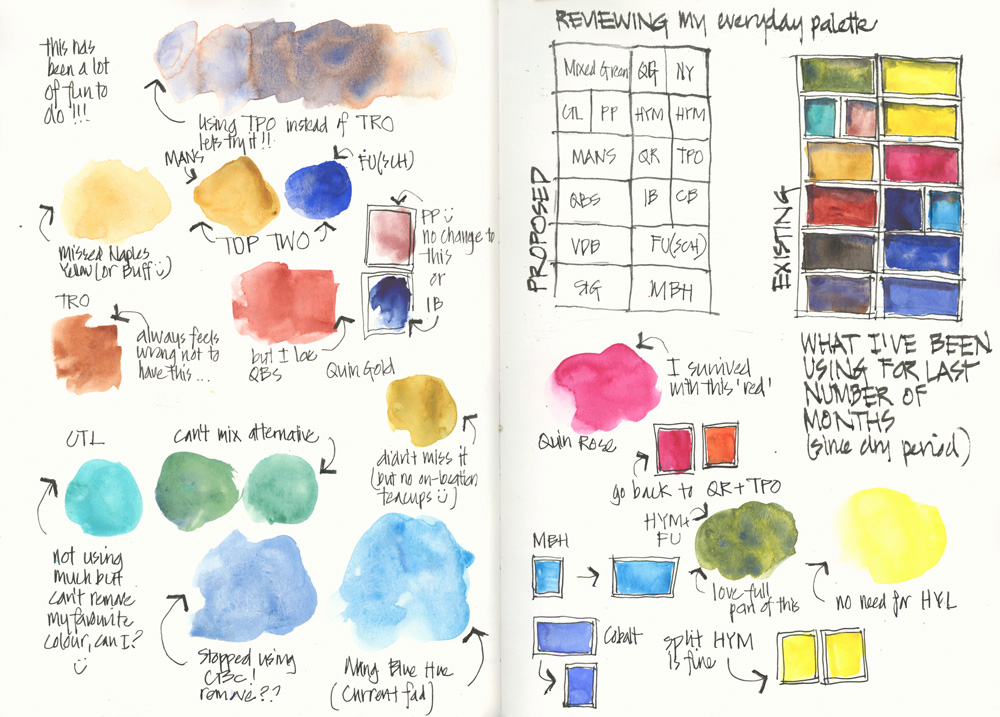 this has
been a lot
of fun to
do!!!
using TPO instead of TRO
lets try it!!
MANS
FU(SCH)
TOP TWO
missed Naples
Yellow (or Buff)
PP
no change to
this
or
IB
TRO
always feels
wrong not to
have this...
but I love
QBS
Quin Gold
didn't miss it
(but no on-location
teacups)
CTL
can't mix alternative
not using
much but
can't remove
my favourite
colour, can I?
Stopped using
remove??
Mang Blue Hue
(current fad)
REVIEWING my everyday palette
PROPOSED
Mixed Green QG NY
CTL PP HYM HYM
MANS QR TPO
QBS IB CB
VDB FU(SCH)
MBH
EXISTING
WHAT I'VE BEEN
USING FOR LAST
NUMBER OF
MONTHS
(since dry period)
I survived
with this 'red'
Quin Rose
go back to QR + TPO
HYM+
FU
love full
pan of this
no need for HYL
MBH
Cobalt
split HYM
is fine